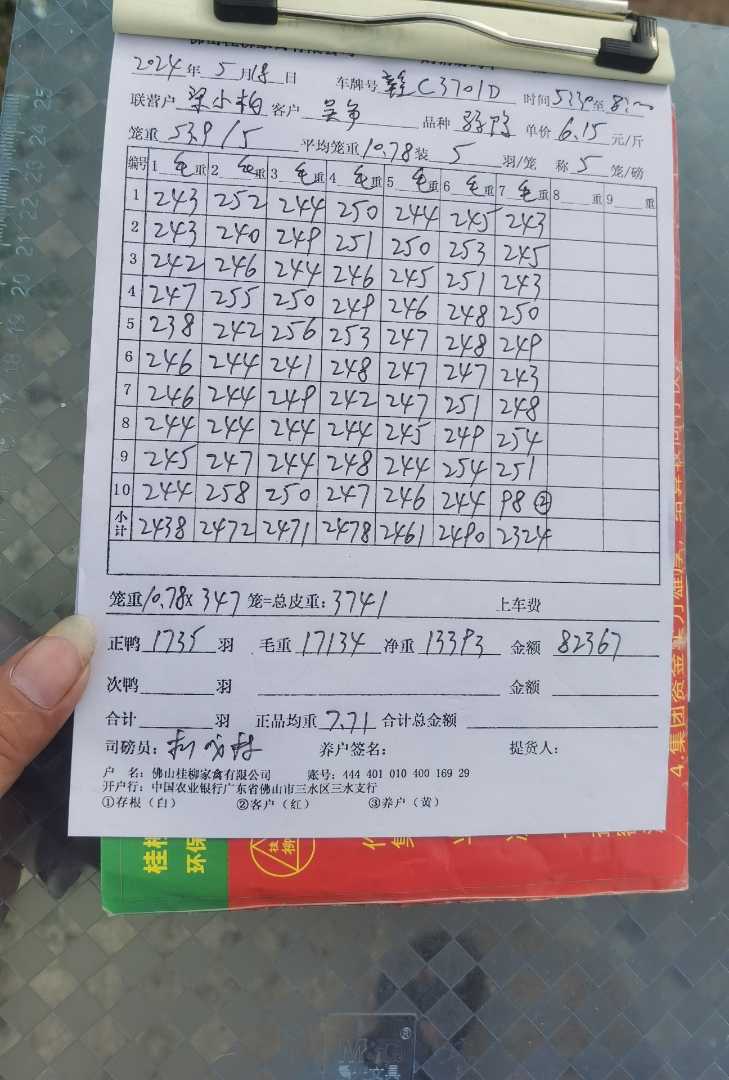 2024年5月18日 车牌号 赣C3701D 时间5:30至8:
联营户 梁小柏 客户 吴争 品种 单价6.15元/斤
笼重53.9/5 平均笼重10.78装5羽/笼 称5笼/磅
编号 1毛重 2毛重 3毛重 4毛重 5毛重 6毛重 7毛重 8 重 9 重
1 243 252 244 250 244 245 243
2 243 240 249 251 250 253 245
3 242 246 244 246 245 251 243
4 247 255 250 249 246 248 250
5 238 242 256 253 247 248 249
6 246 244 241 248 247 247 243
7 246 244 249 242 247 251 248
8 244 244 244 244 245 249 254
9 245 247 244 248 244 254 251
10 244 258 250 247 246 244 98②
小计 2438 2472 2471 2478 2461 2490 2324
笼重10.78×347笼=总皮重:3741 上车费
正鸭1735羽 毛重17134净重13393 金额82367
次鸭 羽 金额
合计 羽 正品均重7.71合计总金额
司磅员: 养户签名: 提货人:
户 名: 佛山桂柳家禽有限公司 账号: 444 401 010 400 169 29
开户行: 中国农业银行广东省佛山市三水区三水支行
①存根(白) ②客户(红) ③养户(黄)
4.集团资金实力雄厚,
桂柳
环保
M&G
文具
25
24
23
22
21
20
19
18